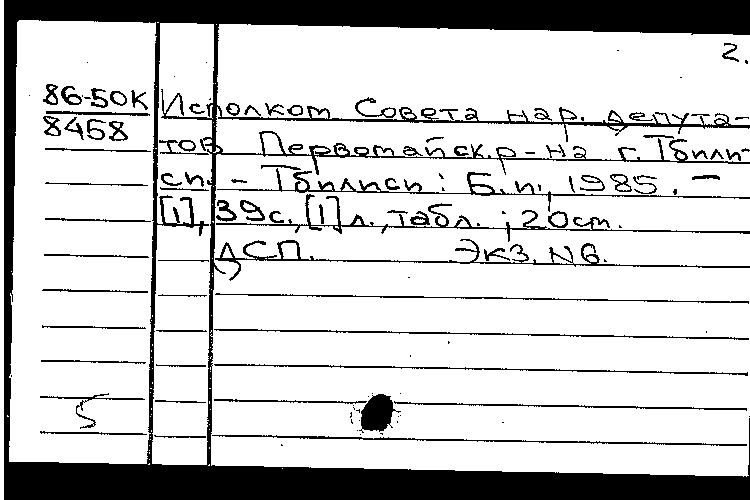 2.
86-50К Исполком Совета нар. депута-
8458 тов Первомайск. р-на г. Тбили-
си. - Тбилиси : Б.и., 1985. -
[1], 39с., [1] л., табл. ; 20см.
ДСП. Экз. N6.
5